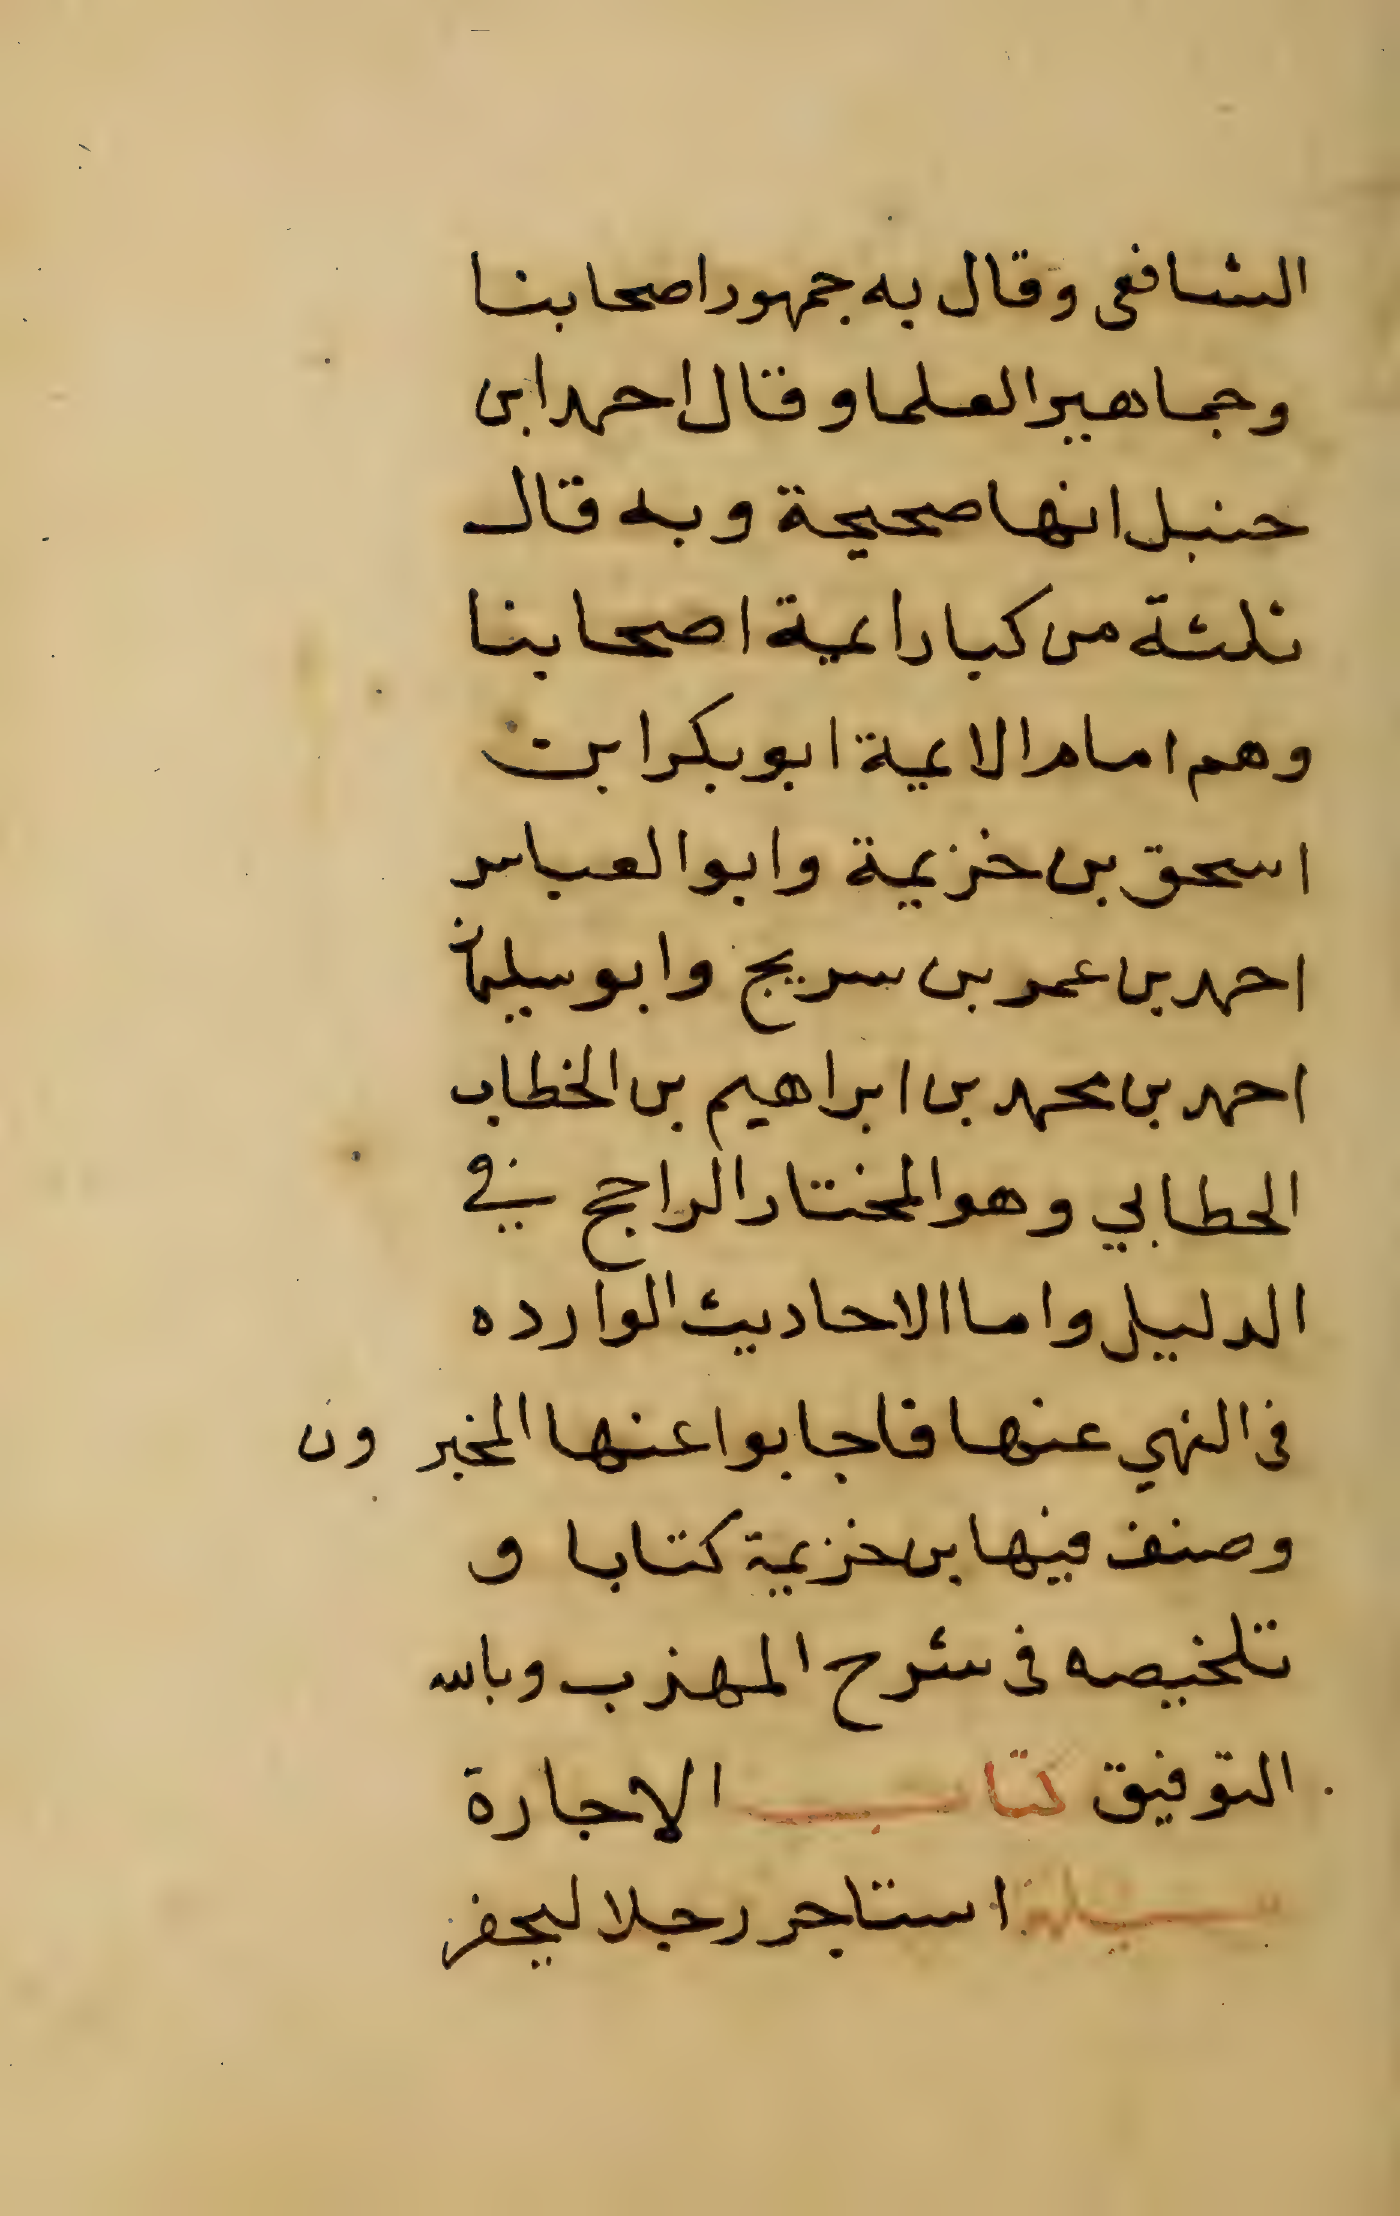 الشافعى وقال به جمهور اصحابنا
وجماهير العلما وقال احمد ابن
حنبل انها صحيحة وبه قال
ثلثة من كبار ايمة اصحابنا
وهم امام الايمة ابو بكر ابن
اسحق بن خزيمة وابو العباس
احمد بن عمر بن سريج وابو سليمان
احمد بن محمد بن ابراهيم بن الخطاب
الخطابي وهو المختار الراجح في
الدليل واما الاحاديث الوارده
فى النهي عنها فاجابوا عنها المخبرون
وصنف فيها بن خزيمة كتابا و
تلخيصه فى شرح المهذب وبالله
التوفيق كتاب الاجارة
مسئلة استاجر رجلا ليحفر